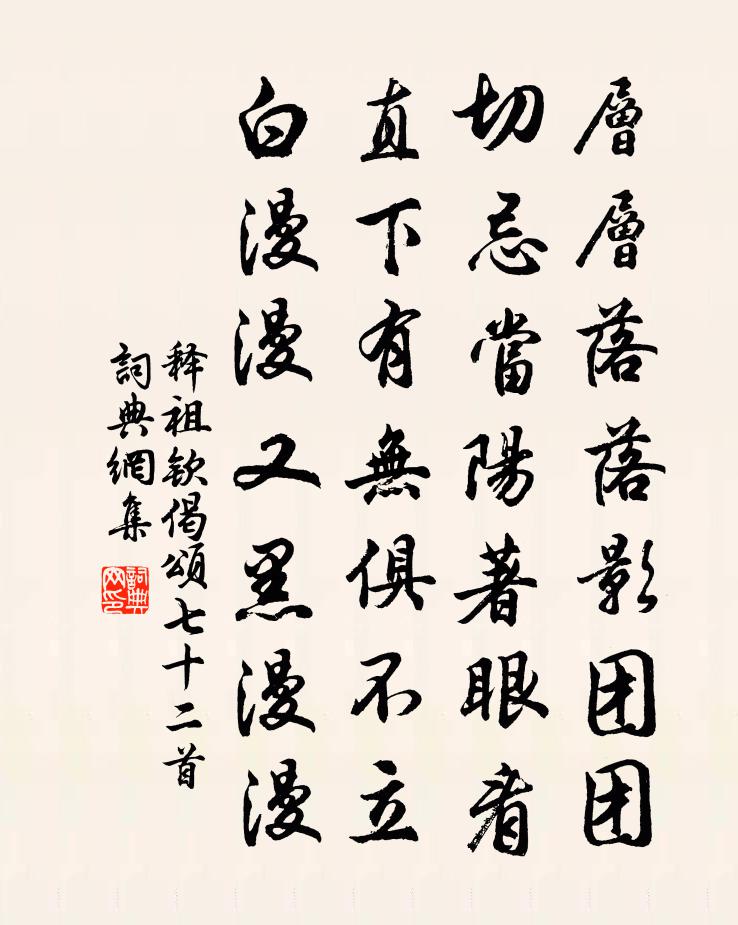 層層落落影团团
切忌當陽著眼看
直下有無俱不立
白漫漫又黑漫漫
释祖钦偈頌七十二首
詞典網集
詞典网印